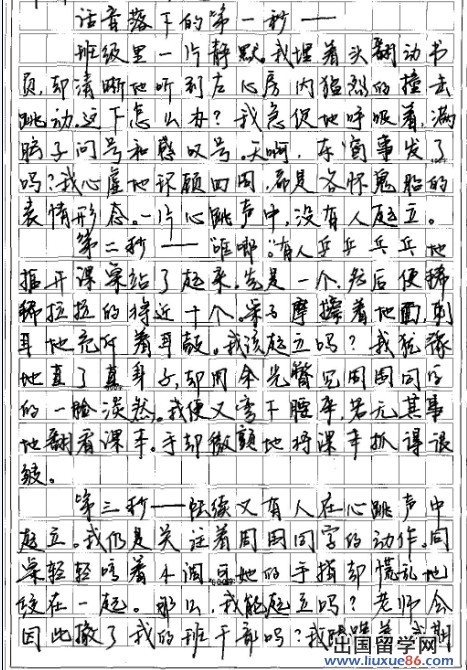 话音落下的第一秒——
班级里一片静默。我埋着头翻动书
页,却清晰地听到左心房内猛烈的撞击
跳动。这下怎么办?我急促地呼吸着,满
脑子问号和感叹号。天啊,东窗事发了
吗?我心虚地环顾四周,都是各怀鬼胎的
表情形态。一片心跳声中,没有人起立。
第二秒——“哐啷。”有人乒乒乓乓地
拒开课桌站了起来。先是一个,然后便稀
稀拉拉的将近十个。桌子摩擦着地面,刺
耳地充斥着耳鼓。我该起立吗?我犹豫
地直了直身子,却用余光瞥见周围同学
的一脸淡然。我便又弯下腰来,若无其事
地翻看课本。手却微颤地将课本抓得很
皱。
第三秒——陆续又有人在心跳声中
起立。我仍是关注着周围同学的动作。同
桌轻轻哼着小调,可她的手指却慌乱地
绞在一起。那么,我能起立吗?老师会
因此撤了我的班干部吗?我
出国留学网
www.liuxue86.com